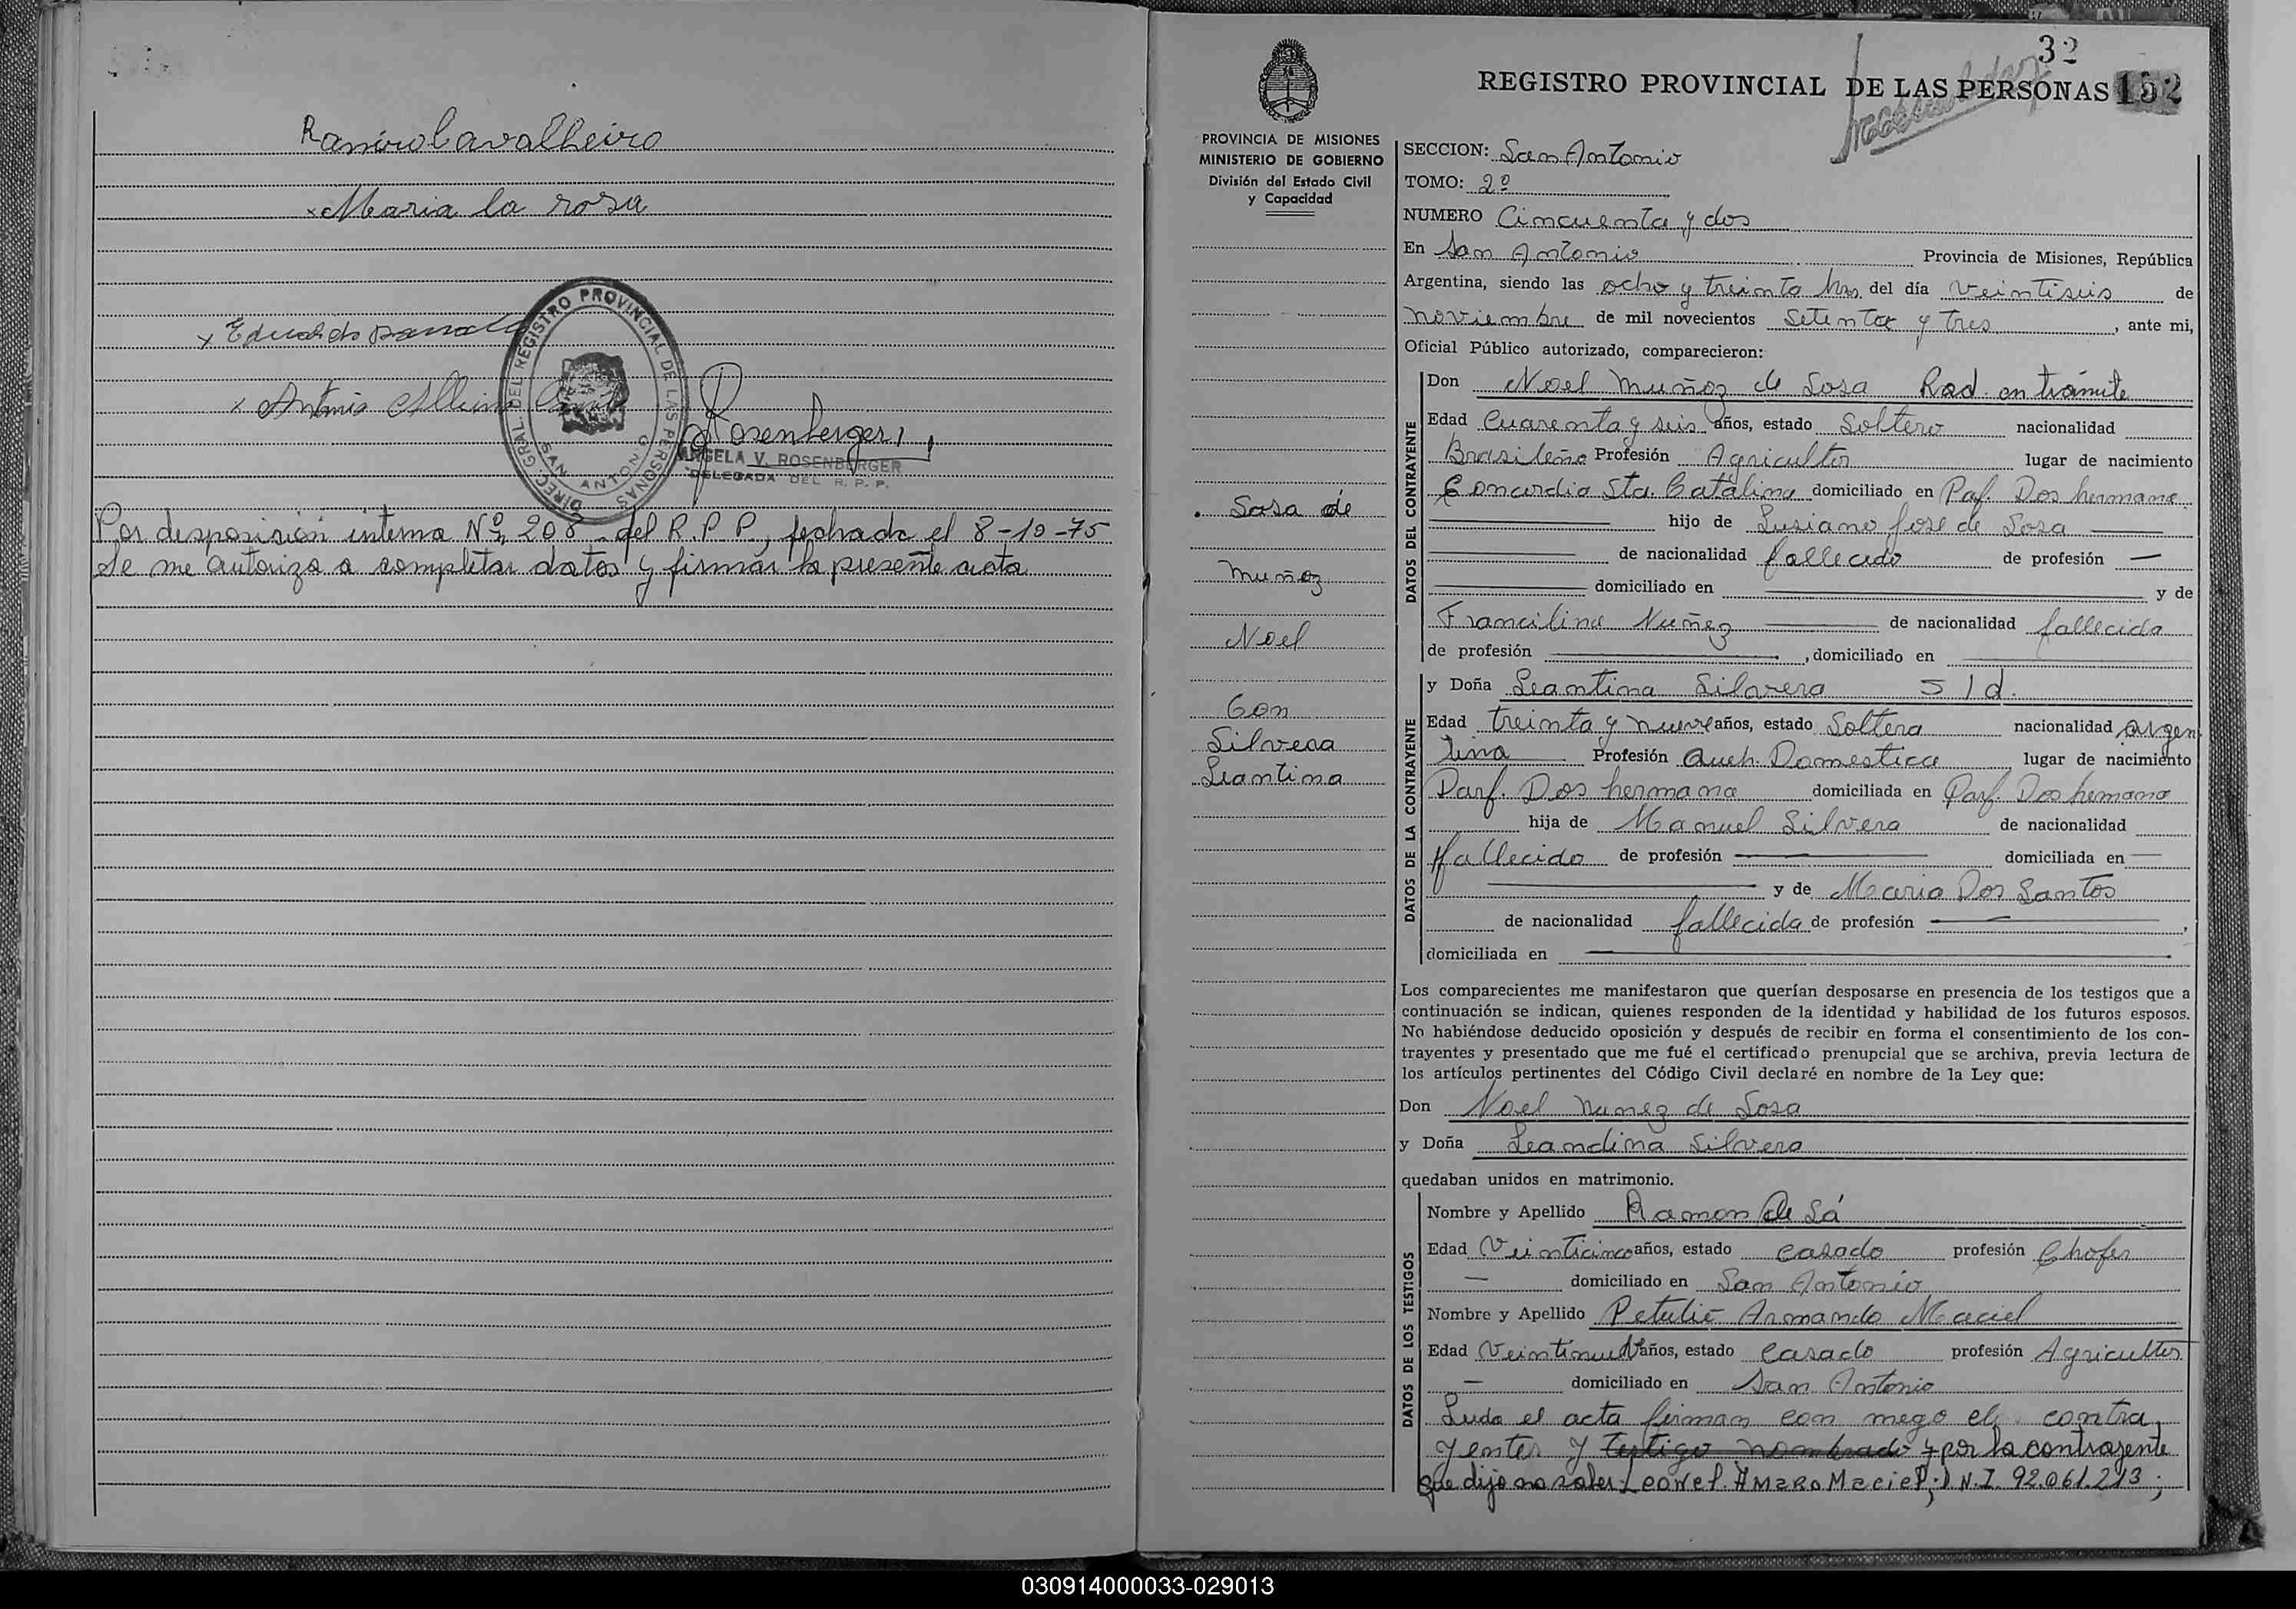 Ramiro Cavalheiro
x Maria la rosa
x Eduardo
x Antonio
DIREC. GRAL. DEL REGISTRO PROVINCIAL DE LAS PERSONAS
SAN ANTONIO
Rosenberger
ANGELA V. ROSENBERGER
DELEGADA DEL R. P. P.
Por desposición interna Nº 208 del R. P. P., fechada el 8-10-75
Se me autoriza a completar datos y firmar la presente acta
32
REGISTRO PROVINCIAL DE LAS PERSONAS 152
PROVINCIA DE MISIONES
MINISTERIO DE GOBIERNO
División del Estado Civil
y Capacidad
Sosa de
Muñoz
Noel
Con
Silvera
Leantina
SECCION: San Antonio
TOMO: 2º
NUMERO Cincuenta y dos
En San Antonio Provincia de Misiones, República
Argentina, siendo las ocho y treinta hrs. del día veintiseis de
noviembre de mil novecientos setenta y tres, ante mi,
Oficial Público autorizado, comparecieron:
DATOS DEL CONTRAYENTE
Don Noel Muñoz de Sosa Rad. en trámite
Edad Cuarenta y seis años, estado Soltero nacionalidad
Brasileño Profesión Agricultor lugar de nacimiento
Concordia Sta. Catalina domiciliado en Paf. Dos hermana
hijo de Lusiano Jose de Sosa
de nacionalidad fallecido de profesión —
domiciliado en y de
Francilina Nuñez de nacionalidad fallecida
de profesión , domiciliado en
DATOS DE LA CONTRAYENTE
y Doña Leantina Silvera S/d.
Edad treinta y nueve años, estado Soltera nacionalidad argen
tina Profesión Queh. Domestica lugar de nacimiento
Parf. Dos hermana domiciliada en Parf. Dos hemana
hija de Manuel Silvera de nacionalidad
fallecido de profesión domiciliada en
y de Maria Dos Santos
de nacionalidad fallecida de profesión ,
domiciliada en
Los comparecientes me manifestaron que querían desposarse en presencia de los testigos que a
continuación se indican, quienes responden de la identidad y habilidad de los futuros esposos.
No habiéndose deducido oposición y después de recibir en forma el consentimiento de los con-
trayentes y presentado que me fué el certificado prenupcial que se archiva, previa lectura de
los artículos pertinentes del Código Civil declaré en nombre de la Ley que:
Don Noel Nunez de Sosa
y Doña Leandina Silvera
quedaban unidos en matrimonio.
DATOS DE LOS TESTIGOS
Nombre y Apellido Ramon De Sá
Edad Veinticinco años, estado casado profesión Chofer
— domiciliado en San Antonio
Nombre y Apellido Petulio Armando Maciel
Edad Veintinueve años, estado Casado profesión Agricultor
— domiciliado en San Antonio
Leida el acta firman con mego el contra
yentes y testigo nombrado y por la contrayente
que dijo no saber Leonel Amaro Maciel; D.N.I. 92.061.213;
030914000033-029013